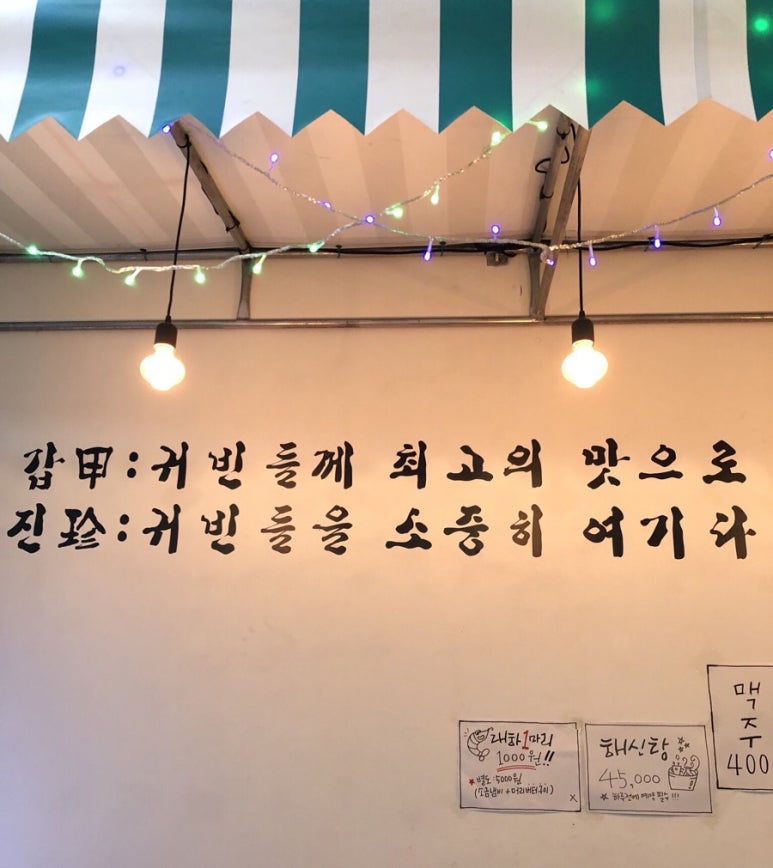 갑甲:귀빈들께 최고의 맛으로
진珍:귀빈들을 소중히 여기다
대하1마리
1000원!!
★별도:5000원
(소금냄비+머리버터구이)
해신탕
45,000
★ 하루전에 예약 필수!!!
맥
주
400